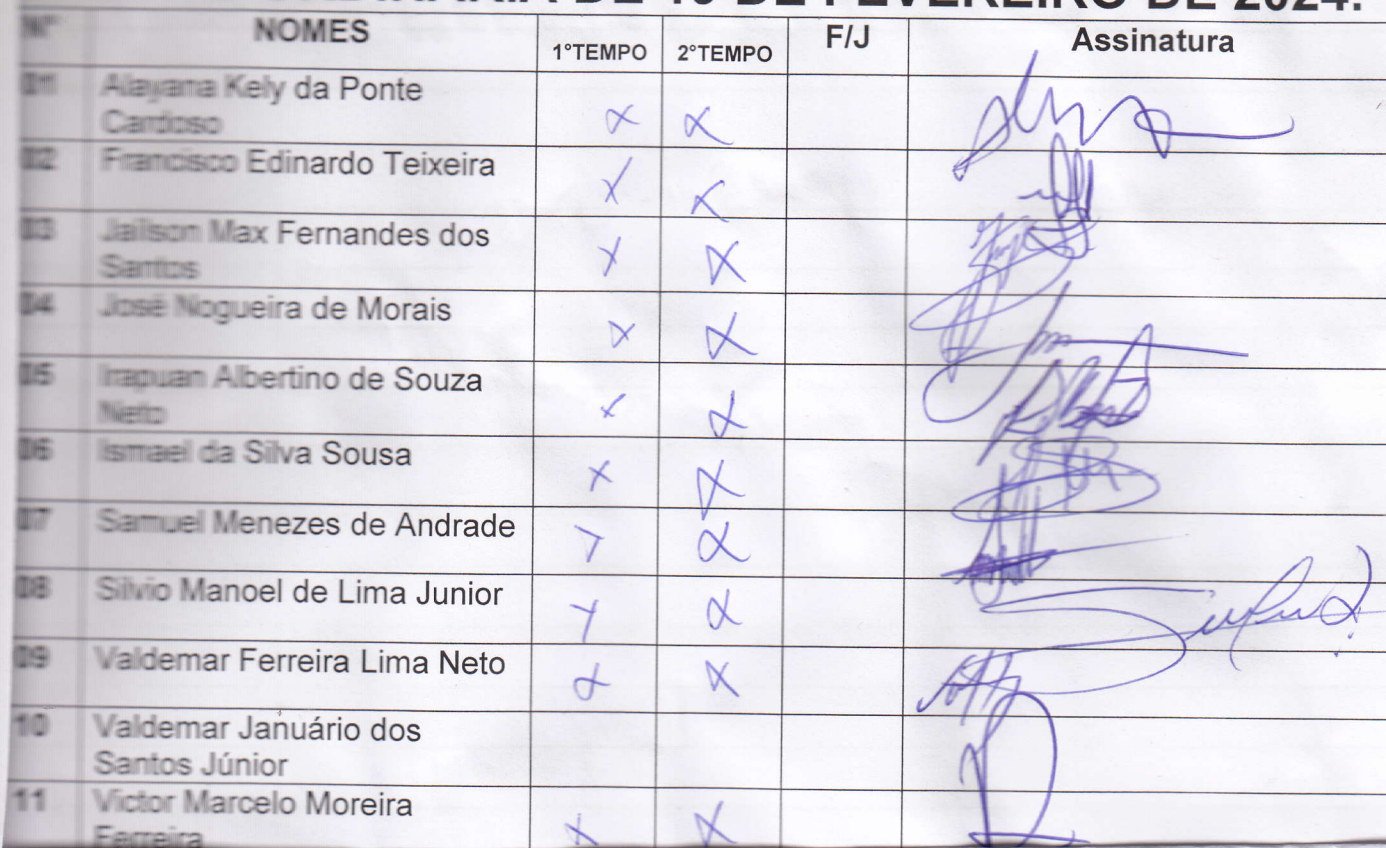 DE FEVEREIRO DE 2024.
Nº NOMES 1°TEMPO 2°TEMPO F/J Assinatura
01 Alayana Kely da Ponte
Cardoso X X
02 Francisco Edinardo Teixeira X X
03 Jailson Max Fernandes dos
Santos X X
04 José Nogueira de Morais X X
05 Irapuan Albertino de Souza
Neto X X
06 Ismael da Silva Sousa X X
07 Samuel Menezes de Andrade X X
08 Silvio Manoel de Lima Junior X X
09 Valdemar Ferreira Lima Neto X X
10 Valdemar Januário dos
Santos Júnior
11 Victor Marcelo Moreira
Ferreira X X